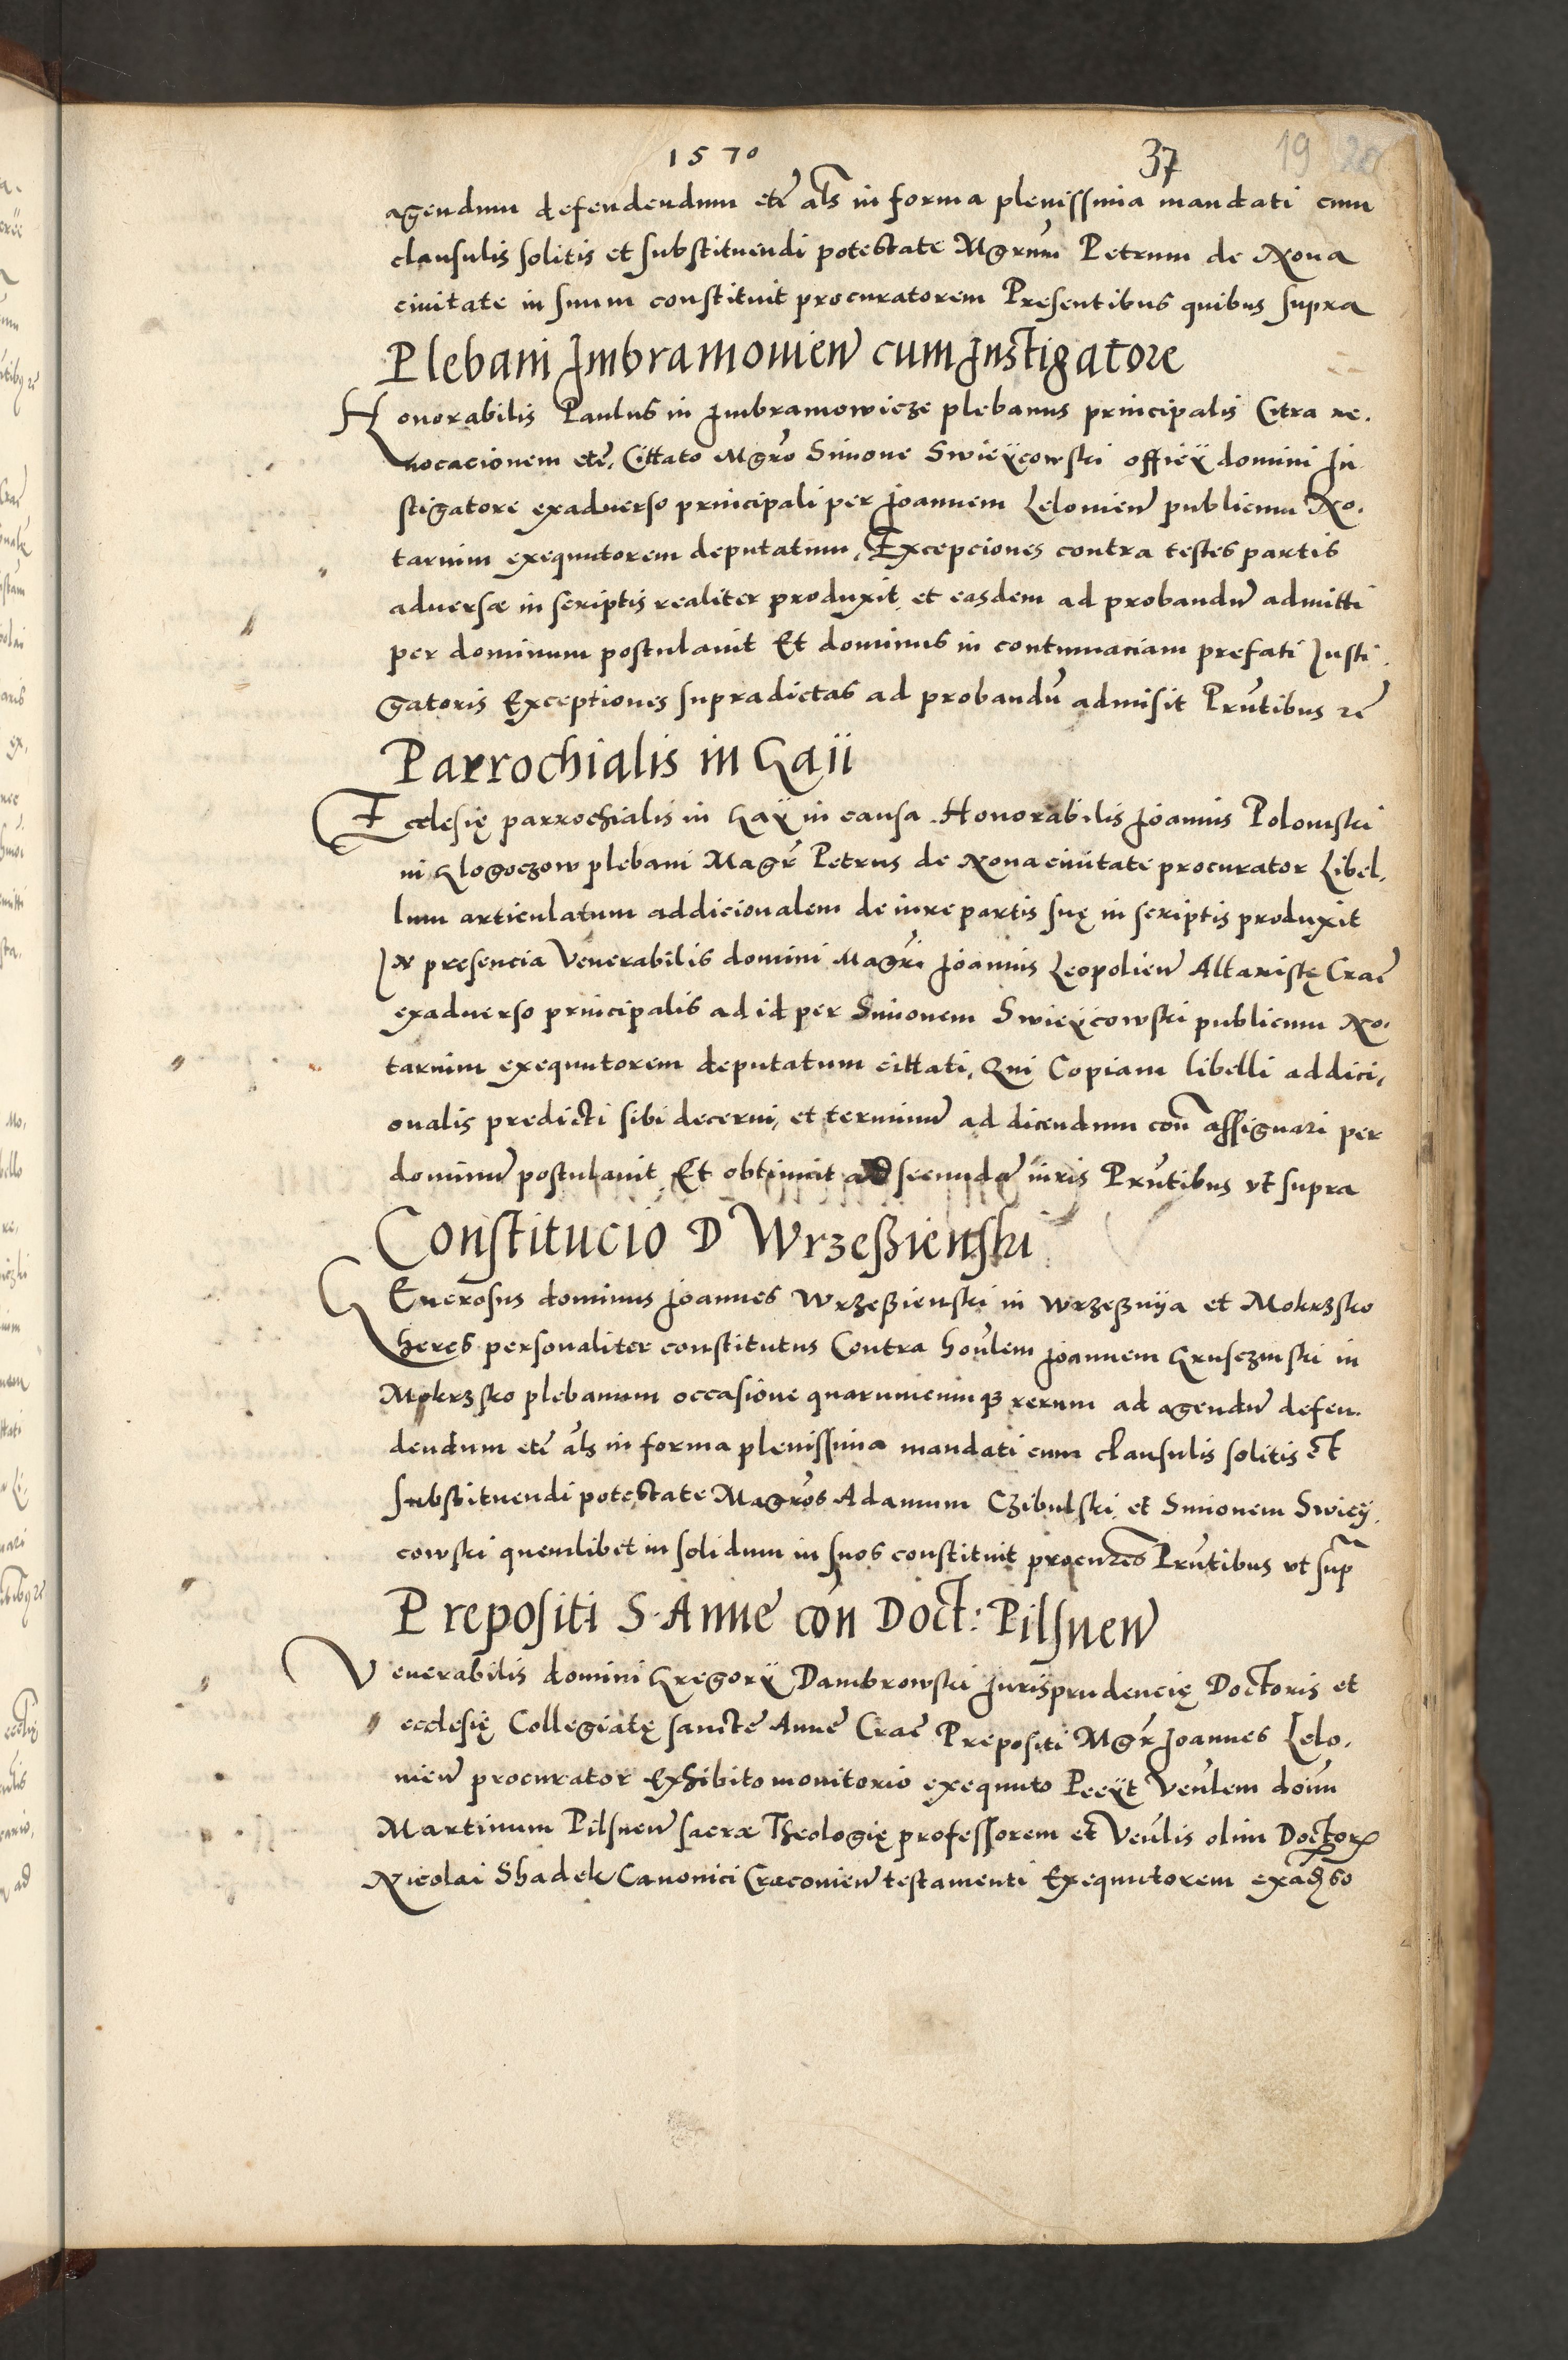 1570 37 19 20
agendum defendendum etc̃ al̃s in forma plenissima mandati cum
clausulis solitis et substituendi potestate Mgrũm Petrum de Noua
ciuitate in suum constituit procuratorem Presentibus quibus supra
Plebani Imbramouien̄ cum Instigatore
Honorabilis Paulus in Imbramowicze plebanus principalis Citra re,
uocacionem etc̃, Cittato Mgrõ Simone Swieÿcowski officÿ domini In
stigatore exaduerso principali per Joannem Lelouien̄ publicum No,
tarium exequutorem deputatum, Excepciones contra testes partis
aduersæ in scriptis realiter produxit, et easdem ad probandū admitti
per dominum postulauit Et dominus in contumaciam prefati Insti,
gatoris Exceptiones supradictas ad probandũ admisit Prñtibus rẽ
Parrochialis in Gaii
Ecclesię parrochialis in Gaÿ in causa Honorabilis Joannis Polomski
in Glogoczow plebani Magr̃ Petrus de Noua ciuitate procurator Libel,
lum articulatum addicionalem de iure partis suę in scriptis produxit
In presencia Venerabilis domini Magrĩ Joannis Leopolien̄ Altaristę Crac̃
exaduerso principalis ad id per Simonem Swieÿcowski publicum No,
tarium exequutorem deputatum cittati, Qui Copiam libelli addici,
onalis predicti sibi decerni, et terminū ad dicendum con̄ assignari per
dominū postulauit Et obtinuit ad secundã iuris Prñtibus vt supra
Constitucio D Wrzeßienski
Generosus dominus Joannes Wrzeßienski in Wrzeßnÿa et Mokrzsko
heres personaliter constitutus Contra hoñlem Joannem Grusczinski in
Mokrzsko plebanum occasione quarumcunqꝫ rerum ad agendū defen,
dendum etc̃ al̃s in forma plenissima mandati cum clausulis solitis et
substituendi potestate Magrõs Adamum Czibulski et Simonem Swieÿ,
cowski quemlibet in solidum in suos constituit procur̃es Prñtibus vt sup̃
Prepositi S. Anne con̄ Doct: Pilsnen̄
Venerabilis domini Gregorÿ Dambrowski Iurisprudencię Doctoris et
ecclesię Collegiatę sancte Anne Crac̃ Prepositi Mgr̃ Joannes Lelo,
uien̄ procurator Exhibito monitorio exequuto Peeÿt Veñlem doñum
Martinum Pilsnen̄ sacræ Theologię professorem et Veñlis olim Doctorꝭ
Nicolai Shadek Canonici Cracouien̄ testamenti Exequutorem exadṽso